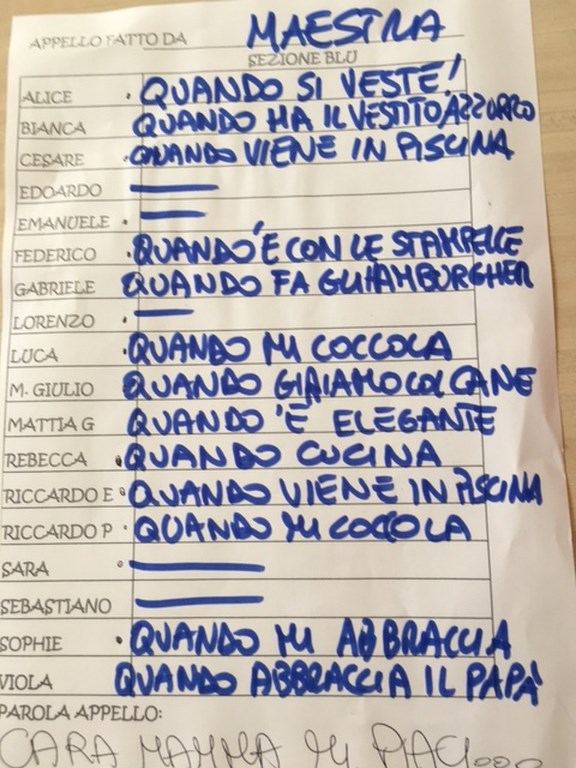 APPELLO FATTO DA MAESTRA
SEZIONE BLU
ALICE QUANDO SI VESTE!
BIANCA QUANDO HA IL VESTITO AZZURRO
CESARE QUANDO VIENE IN PISCINA
EDOARDO
EMANUELE
FEDERICO QUANDO É CON LE STAMPELLE
GABRIELE QUANDO FA GLI HAMBURGHER
LORENZO
LUCA QUANDO MI COCCOLA
M. GIULIO QUANDO GIRIAMO COL CANE
MATTIA G QUANDO É ELEGANTE
REBECCA QUANDO CUCINA
RICCARDO E QUANDO VIENE IN PISCINA
RICCARDO P QUANDO MI COCCOLA
SARA
SEBASTIANO
SOPHIE QUANDO MI ABBRACCIA
VIOLA QUANDO ABBRACCIA IL PAPÀ
PAROLA APPELLO:
CARA MAMMA MI PIACI...